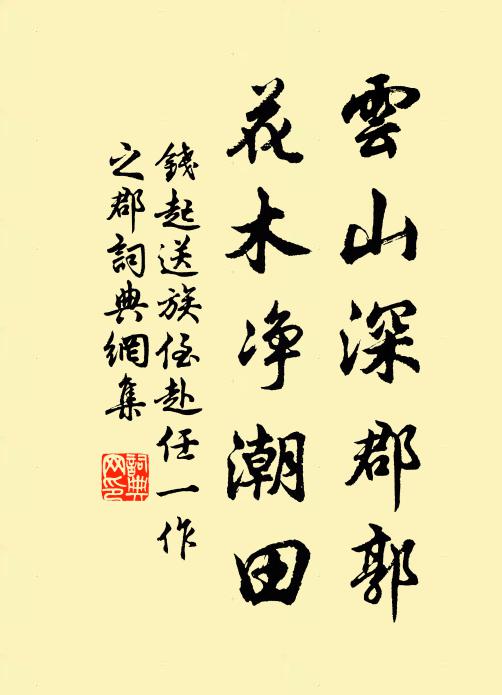 雲山深郡郭
花木净潮田
錢起送族侄赴任一作
之郡詞典網集
詞典
网印